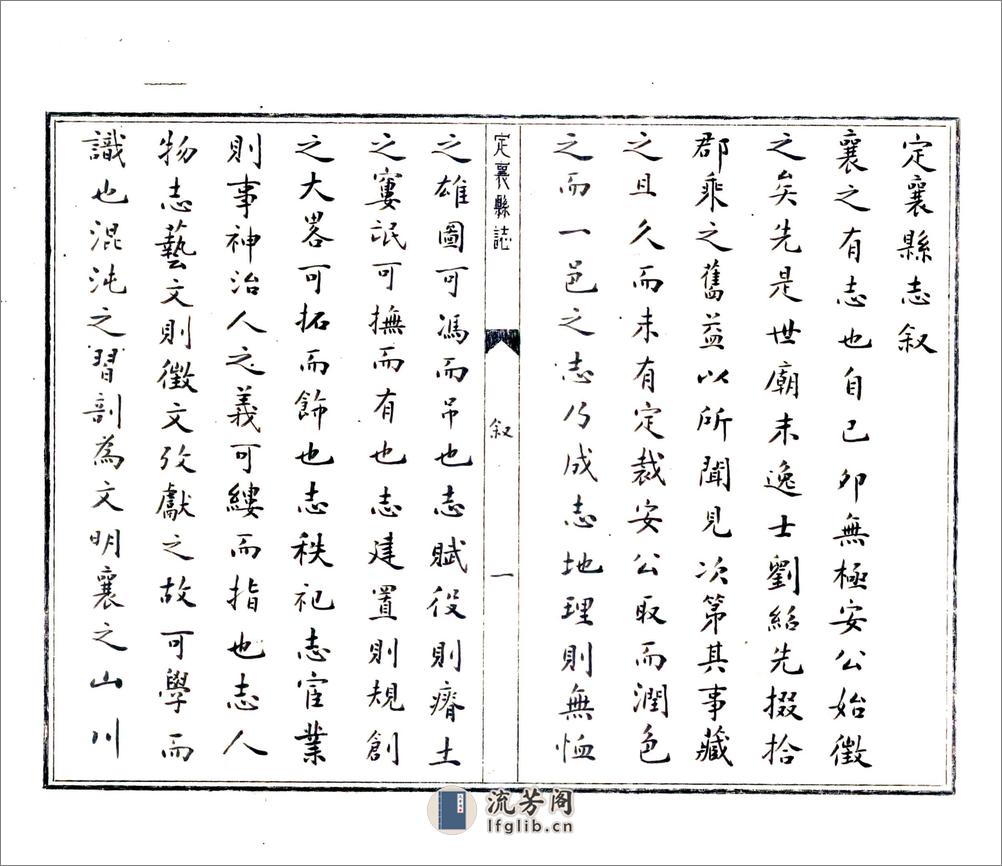 定襄縣志叙
襄之有志也自己卯無極安公始徵
之矣先是世廟末逸士劉紹先掇拾
郡乘之舊益以所聞見次第其事藏
之且久而未有定裁安公取而潤色
之而一邑之志乃成志地理則無恤
定襄縣誌
叙
一
之雄圖可馮而吊也志賦役則瘠土
之窶氓可撫而有也志建置則規創
之大畧可拓而飾也志秩祀志宦業
則事神治人之義可縷而指也志人
物志藝文則徵文攷獻之故可學而
識也混沌之習剖為文明襄之山川
流芳阁
lfglib.cn